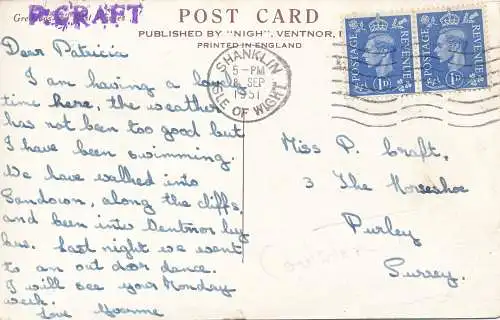 P.CRAFT
Gre
POST CARD
PUBLISHED BY "NIGH", VENTNOR, I
PRINTED IN ENGLAND
SHANKLIN
5-PM
SEP
1951
ISLE OF WIGHT
POSTAGE
REVENUE
1D
POSTAGE
REVENUE
1D
Dear Patricia
I am having a lovely
time here, the weather
has not been too good but
I have been swimming.
We have walked into
Sandown, along the cliffs,
and been into Ventnor by
bus. Last night we went
to an out door dance.
I will see your Monday
week.
Love Yvonne
Miss P. Craft.
3 The Horseshoe
Purley
Surrey.